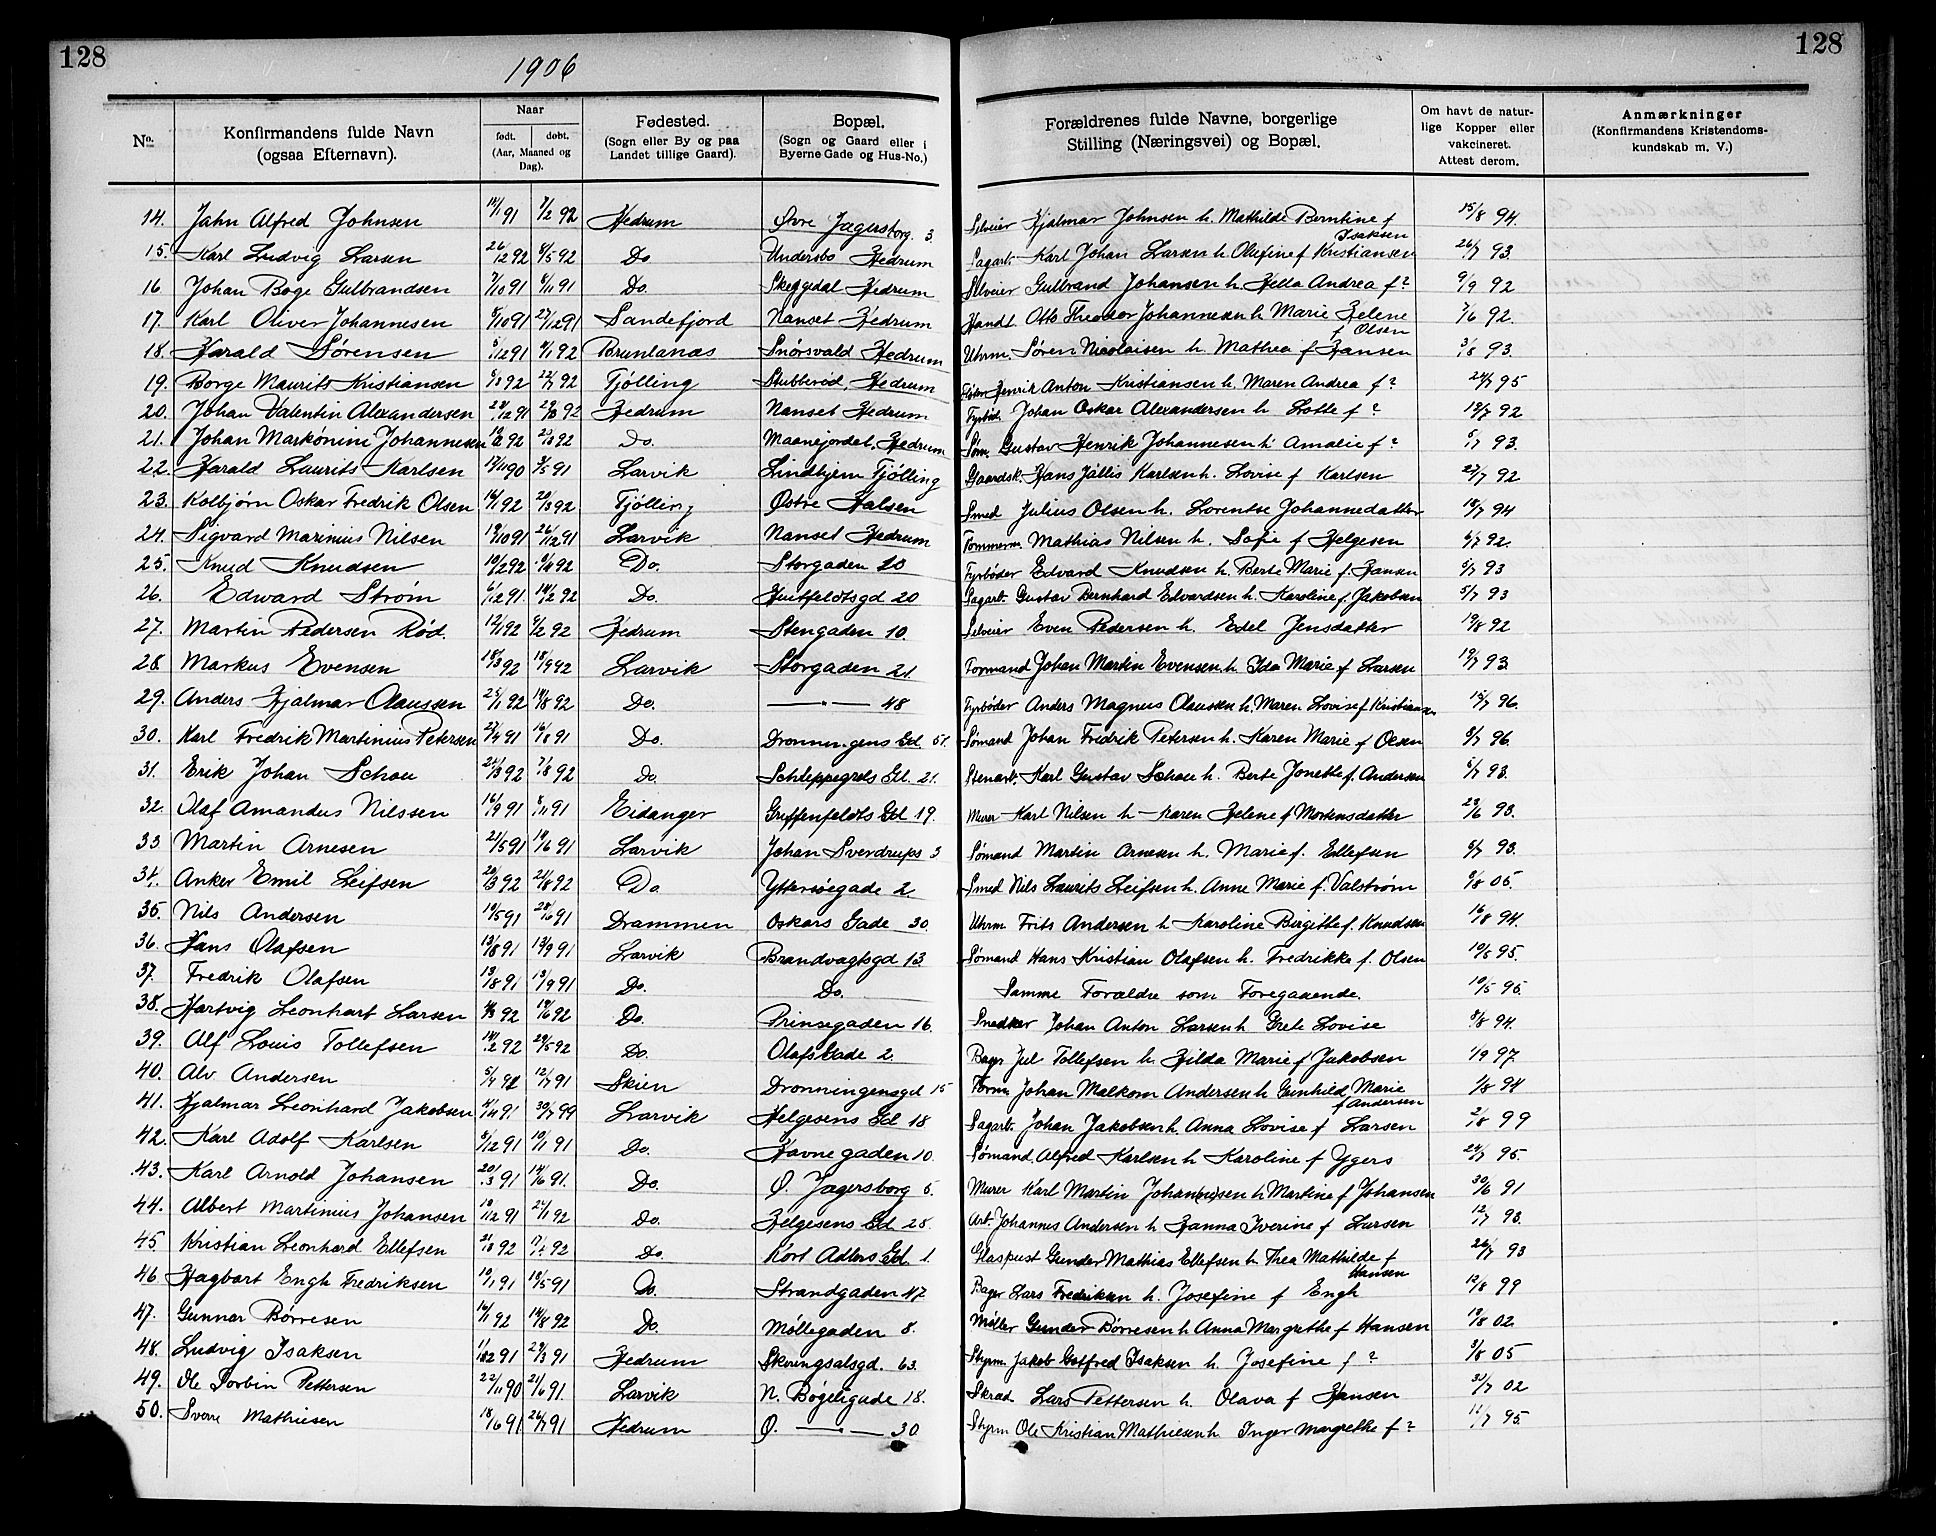 128
1906
128
No.
Konfirmandens fulde Navn (ogsaa Efternavn).
Naar
født.
døbt.
(Aar, Maaned og Dag).
Fødested. (Sogn eller By og paa Landet tillige Gaard).
Bopæl. (Sogn og Gaard eller i Byerne Gade og Hus-No.)
Forældrenes fulde Navne, borgerlige Stilling (Næringsvei) og Bopæl.
Om havt de naturlige Kopper eller vakcineret. Attest derom.
Anmærkninger (Konfirmandens Kristendomskundskab m. V.)
14. Jahn Alfred Johnsen 91 7/2 92 Hedrum Øvre Jagersborg. 3. Selveier Hjalmar Johnsen h. Mathilde Berntine f Isaksen 15/8 94.
15. Karl Ludvig Larsen 92 8/5 92 Do Undersbo Hedrum Sagarb. Karl Johan Larsen h. Olufine f Kristiansen 26/7 93.
16 Johan Boge Gulbrandsen 7/10 91 8/11 91 Do. Skeggedal Hedrum Selveier Gulbrand Johansen h. Hella Andrea f ? 9/9 92
17. Karl Oliver Johannesen 8/10 91 27/12 91 Sandefjord Nanset Hedrum Handl. Otto Theodor Johannesen h Marie Helene f Olsen 7/6 92.
18. Harald Sørensen 5/12 91 92 Brunlanæs Snørsvald Hedrum Uhrm. Søren Nicolaisen h. Mathea f Hansen 3/8 93.
19. Borge Maurits Kristiansen 92 22/7 92 Tjølling Stubberød Hedrum Henrik Anton Kristiansen h. Maren Andrea f ? 24/7 95
20. Johan Valentin Alexandersen 91 92 Hedrum Nanset Hedrum Fyrbød. Johan Oskar Alexandersen h Lotte f ? 19/7 92
21. Johan Markónini Johannesen 92 92 Do. Maanejordet, Hedrum Søm. Gustav Henrik Johannesen h Amalie f ? 93.
22. Harald Laurits Karlsen 17/11 90 91 Larvik Lindhjem Tjølling Gaardsk. Hans Jållis Karlsen h. Lovise f Karlsen 27/7 92
23. Kolbjørn Oskar Fredrik Olsen 14/1 92 20/3 92 Tjølling Østre Halsen Smed Julius Olsen h. Lorentse Johannedatter 18/7 94
24. Sigvard Marinius Nilsen 19/10 91 26/12 91 Larvik Nanset Hedrum Tømmerm. Mathias Nilsen h. Sofie f Helgesen 92.
25. Knud Knudsen 10/2 92 92 Do. Storgaden 20 Fyrbøder Edvard Knudsen h. Berte Marie f. Hansen 93
26. Edward Strøm 6/12 91. 14/2 92 Do. Huitfeldtsgd 20 Sagarb. Gustav Bernhard Edvardsen h. Karoline f. Jakobsen 5/7 93
27. Martin Pedersen Rød. 12/1 92 9/2 92 Hedrum Stengaden 10. Selveier Even Pedersen h. Edel Jensdatter 19/8 92
28. Markus Evensen 18/3 92 18/9 92 Larvik Storgaden 21. Formand Johan Martin Evensen h. Ida Marie f Larsen 19/7 93
29. Anders Hjalmar Olaussen 25/1 92 14/8 92 Do. —"— 48 Fyrbøder Anders Magnus Olaussen h. Maren Lovise f Kristiansen 15/7 96.
30. Karl Fredrik Martinius Petersen 27/4 91 16/8 91 Do. Dronningens Gd. 51. Sømand Johan Fredrik Petersen h. Karen Marie f Olsen 9/7 96.
31. Erik Johan Schou 24/3 92 7/8 92 Do. Schleppegrels Gd. 21. Stenarb. Karl Gustav Schou h. Berte Jonette f. Andersen 93.
32. Olaf Amandus Nilssen 16/9 91 8/11 91 Eidanger Griffenfeldts Gd 19. Murer Karl Nilsen h Karen Helene f Mortensdatter 23/6 93.
33 Martin Arnesen 21/5 91 19/6 91 Larvik Johan Sverdrups 3 Sømand Martin Arnesen h. Marie f. Ellefsen 93.
34. Anker Emil Leifsen 20/3 92 21/8 92 Do Yttersøegade 2. Smed Nils Laurits Leifsen h. Anne Marie f. Valstrøm 9/8 05.
35. Nils Andersen 19/5 91 91 Drammen Oskars Gade 30. Uhrm. Frits Andersen h Karoline Birgitte f. Knudsen 16/8 94.
36. Hans Olafsen 13/8 91 13/9 91 Larvik Brandvagtsgd 13 Sømand Hans Kristian Olafsen h. Fredrikke f. Olsen 10/5 95.
37. Fredrik Olafsen 13/8 91 13/9 91 Do. Do. Samme Forældre som Foregaaende. 10/5 95.
38. Hartvig Leonhart Larsen 92 19/6 92 Do. Prinsegaden 16. Snedker Johan Anton Larsen h Grete Lovise 8/8 94.
39. Alf Louis Tollefsen 14/2 92 29/5 92 Do. Olafs Gade 2. Bager Jul Tollefsen h. Hilda Marie f Jakobsen 1/9 97.
40. Alv Andersen 5/4 92 12/7 91 Skien Dronningensgd 15 Form. Johan Malkom Andersen h Gunhild Marie f Andersen 1/8 94
41. Hjalmar Leonhard Jakobsen 4/11 91 30/7 99 Larvik Helgesens Gd 18 Sagarb. Johan Jakobsen h. Anna Lovise f Larsen 2/8 99
42. Karl Adolf Karlsen 91 91 Do. Havnegaden 10. Sømand. Alfred Karlsen h Karoline f Ygers 24/7 95.
43. Karl Arnold Johansen 20/3 91 14/6 91. Do. Ø. Jagersborg 5. Murer Karl Martin Johan(ne)sen h Martine f Johansen 30/6 91
44. Albert Martinius Johansen 19/12 91 24/1 92 Do. Helgesens Gd 25. Arb. Johannes Andersen h Hanna Iverine f Larsen 12/7 93.
45 Kristian Leonhard Ellefsen 92 92 Do. Kort Adlers Gd. 1. Glaspust Gunder Mathias Ellefsen h Thea Mathilde f Hansen 26/7 93
46 Hagbart Engh Fredriksen 19/1 91 18/5 91 Do. Strandgaden 47 Bager Lars Fredriksen h. Josefine f Engh 12/8 99
47. Gunnar Børresen 16/1 92 14/8 92 Do. Møllegaden 8. Møller Gunder Børresen h Anna Margrethe f Hansen 19/8 02
48. Ludvig Isaksen 91 29/3 91 Hedrum Skiringsalsgd. 63. Styrm. Jakob Gotfred Isaksen h. Josefine f ? 3/8 05
49. Ole Torbin Pettersen 22/11 90 21/6 91. Larvik N. Bøgeligade 18. Skræd. Lars Pettersen h. Olava f Hansen 31/7 02
50. Sverre Mathiesen 18/6 91 26/7 91 Hedrum Ø. —"— 30 Styrm Ole Kristian Mathiesen h. Inger Margrethe f ? 11/7 95.